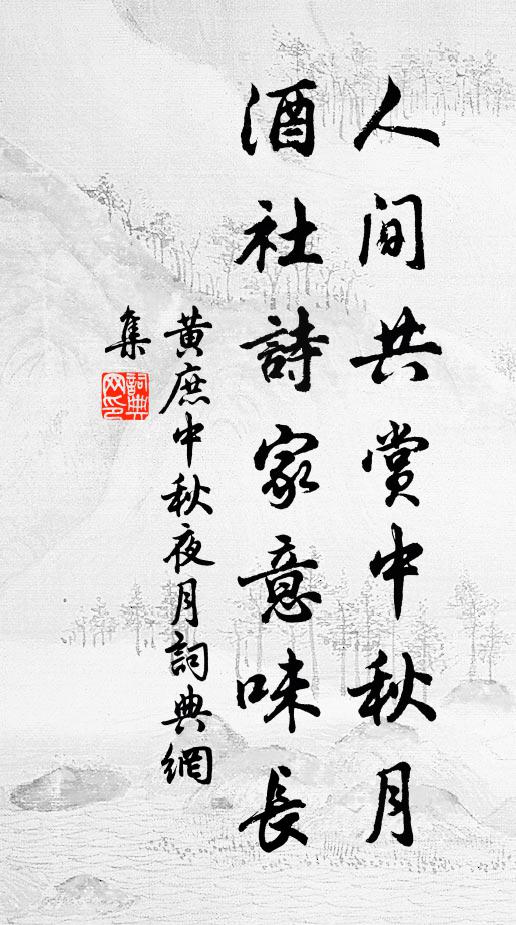 人間共賞中秋月
酒社詩家意味長
黃庶中秋夜月詞典網
集
詞典
网印